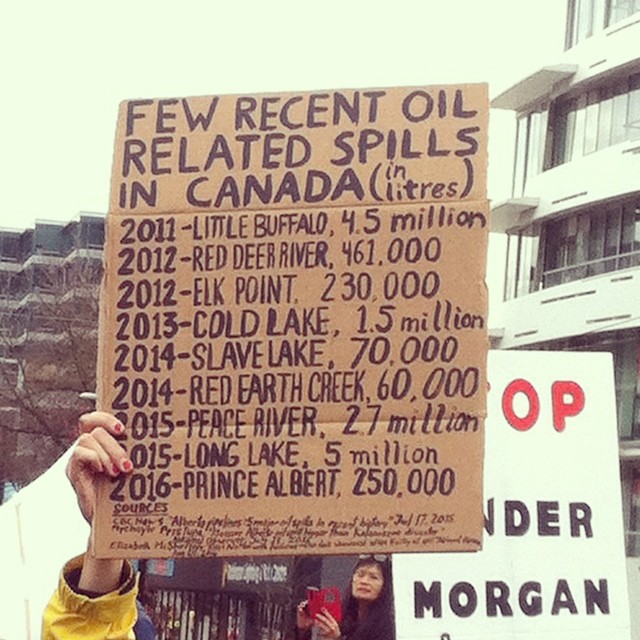 FEW RECENT OIL
RELATED SPILLS
IN CANADA (in litres)
2011-LITTLE BUFFALO, 4.5 million
2012-RED DEER RIVER, 461,000
2012-ELK POINT, 230,000
2013-COLD LAKE, 1.5 million
2014-SLAVE LAKE, 70,000
2014-RED EARTH CREEK, 60,000
2015-PEACE RIVER, 2.7 million
2015-LONG LAKE, 5 million
2016-PRINCE ALBERT, 250,000
SOURCES
CBC News "Alberta pipelines: 5 major oil spills in recent history" Jul 17, 2015
Elizabeth
OP
NDER
MORGAN